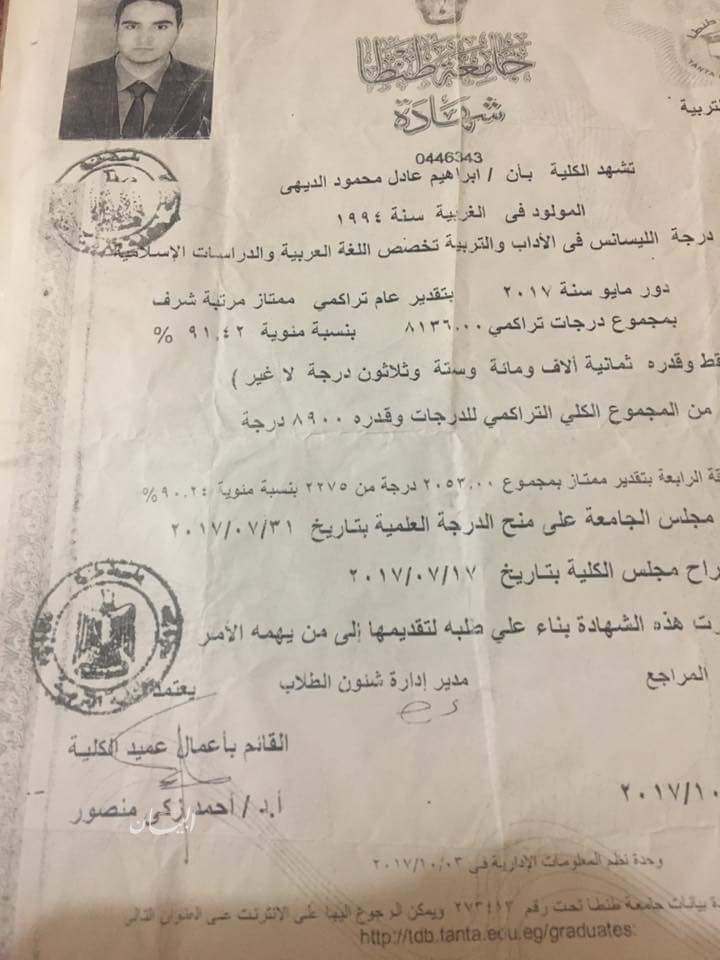 جامعة طنطا
شهادة
TANTA
التربية
0446343
تشهد الكلية بأن / ابراهيم عادل محمود الديهى
المولود فى الغربية سنة ١٩٩٤
درجة الليسانس فى الأداب والتربية تخصص اللغة العربية والدراسات الإسلامية
دور مايو سنة ٢٠١٧ بتقدير عام تراكمي ممتاز مرتبة شرف
بمجموع درجات تراكمي ٨١٣٦.٠٠ بنسبة مئوية ٩١.٤٢ %
قط وقدره ثمانية ألاف ومائة وستة وثلاثون درجة لا غير )
من المجموع الكلي التراكمي للدرجات وقدره ٨٩٠٠ درجة
قة الرابعة بتقدير ممتاز بمجموع ٢٠٥٣.٠٠ درجة من ٢٢٧٥ بنسبة مئوية ٩٠.٢٤%
مجلس الجامعة على منح الدرجة العلمية بتاريخ ٢٠١٧/٠٧/٣١
راح مجلس الكلية بتاريخ ٢٠١٧/٠٧/١٧
رت هذه الشهادة بناء علي طلبه لتقديمها إلى من يهمه الأمر
المراجع مدير إدارة شئون الطلاب يعتمد
القائم بأعمال عميد الكلية
أ.د / أحمد زكى منصور
البيان
٢٠١٧/١٠
وحدة نظم المعلومات الإدارية فى ٢٠١٧/١٠/٠٣
دة بيانات جامعة طنطا تحت رقم ٢٧٣٤١٣ ويمكن الرجوع اليها على الانترنت على العنوان التالى
http://tdb.tanta.edu.eg/graduates: